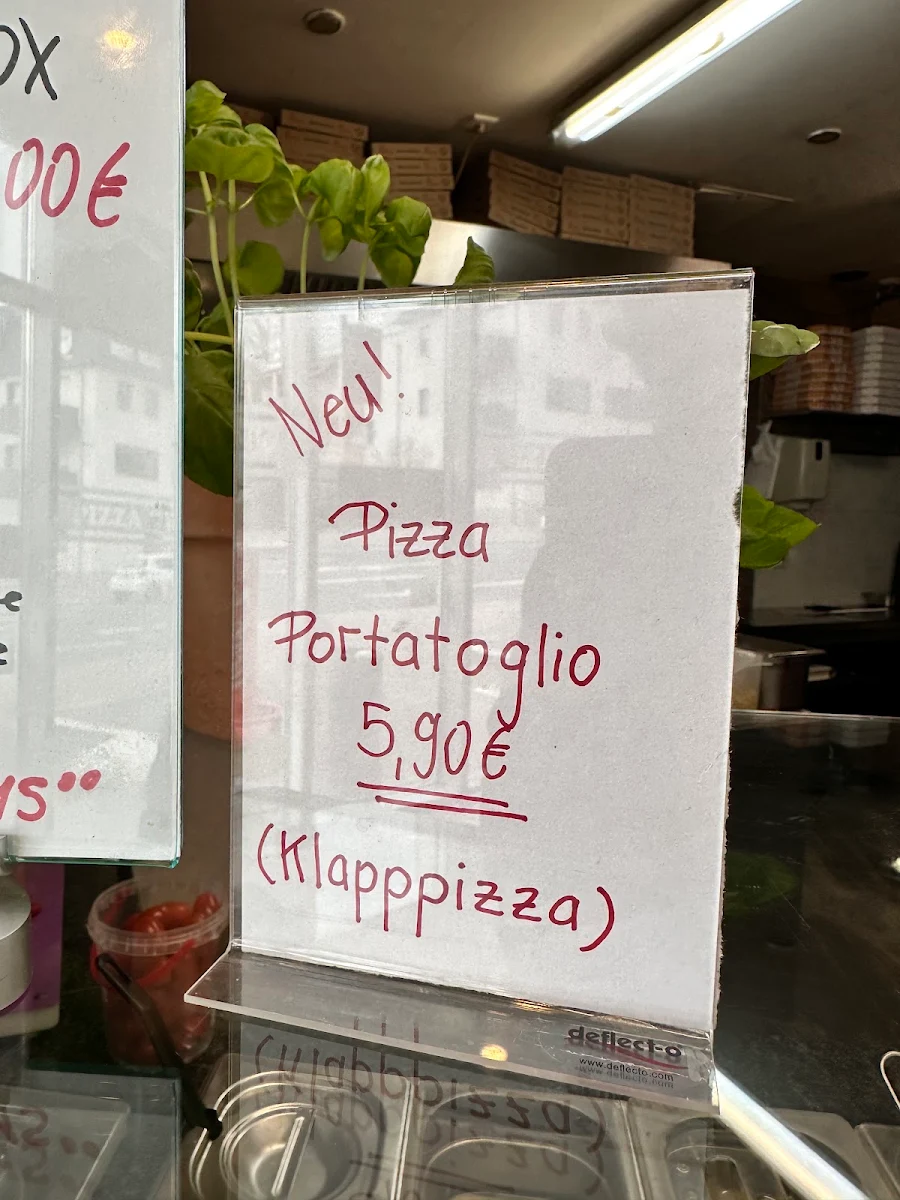 00€
Neu!
Pizza
Portatoglio
5,90€
(Klapppizza)
deflect-o
www.deflecto.com